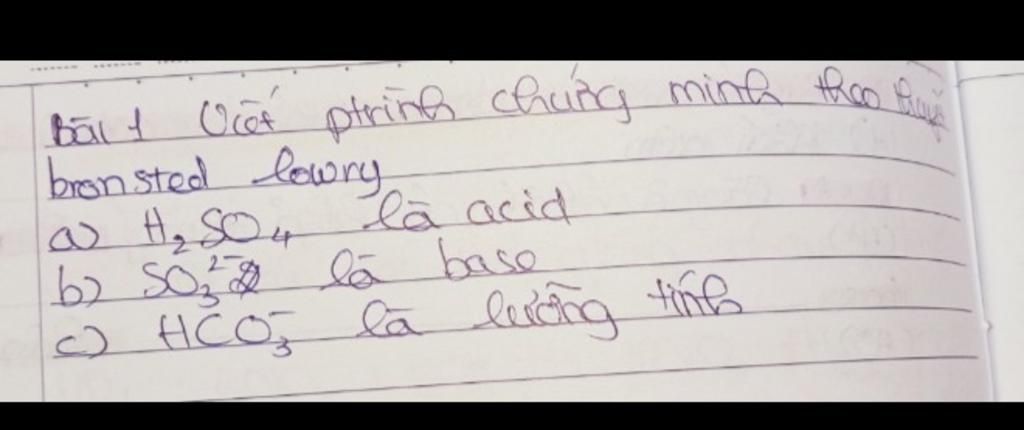 bài 1 Viết ptrình chứng minh theo thuyết
bronsted lowry
a) H₂SO₄ là acid
b) SO₃²⁻ là base
c) HCO₃⁻ là lưỡng tính